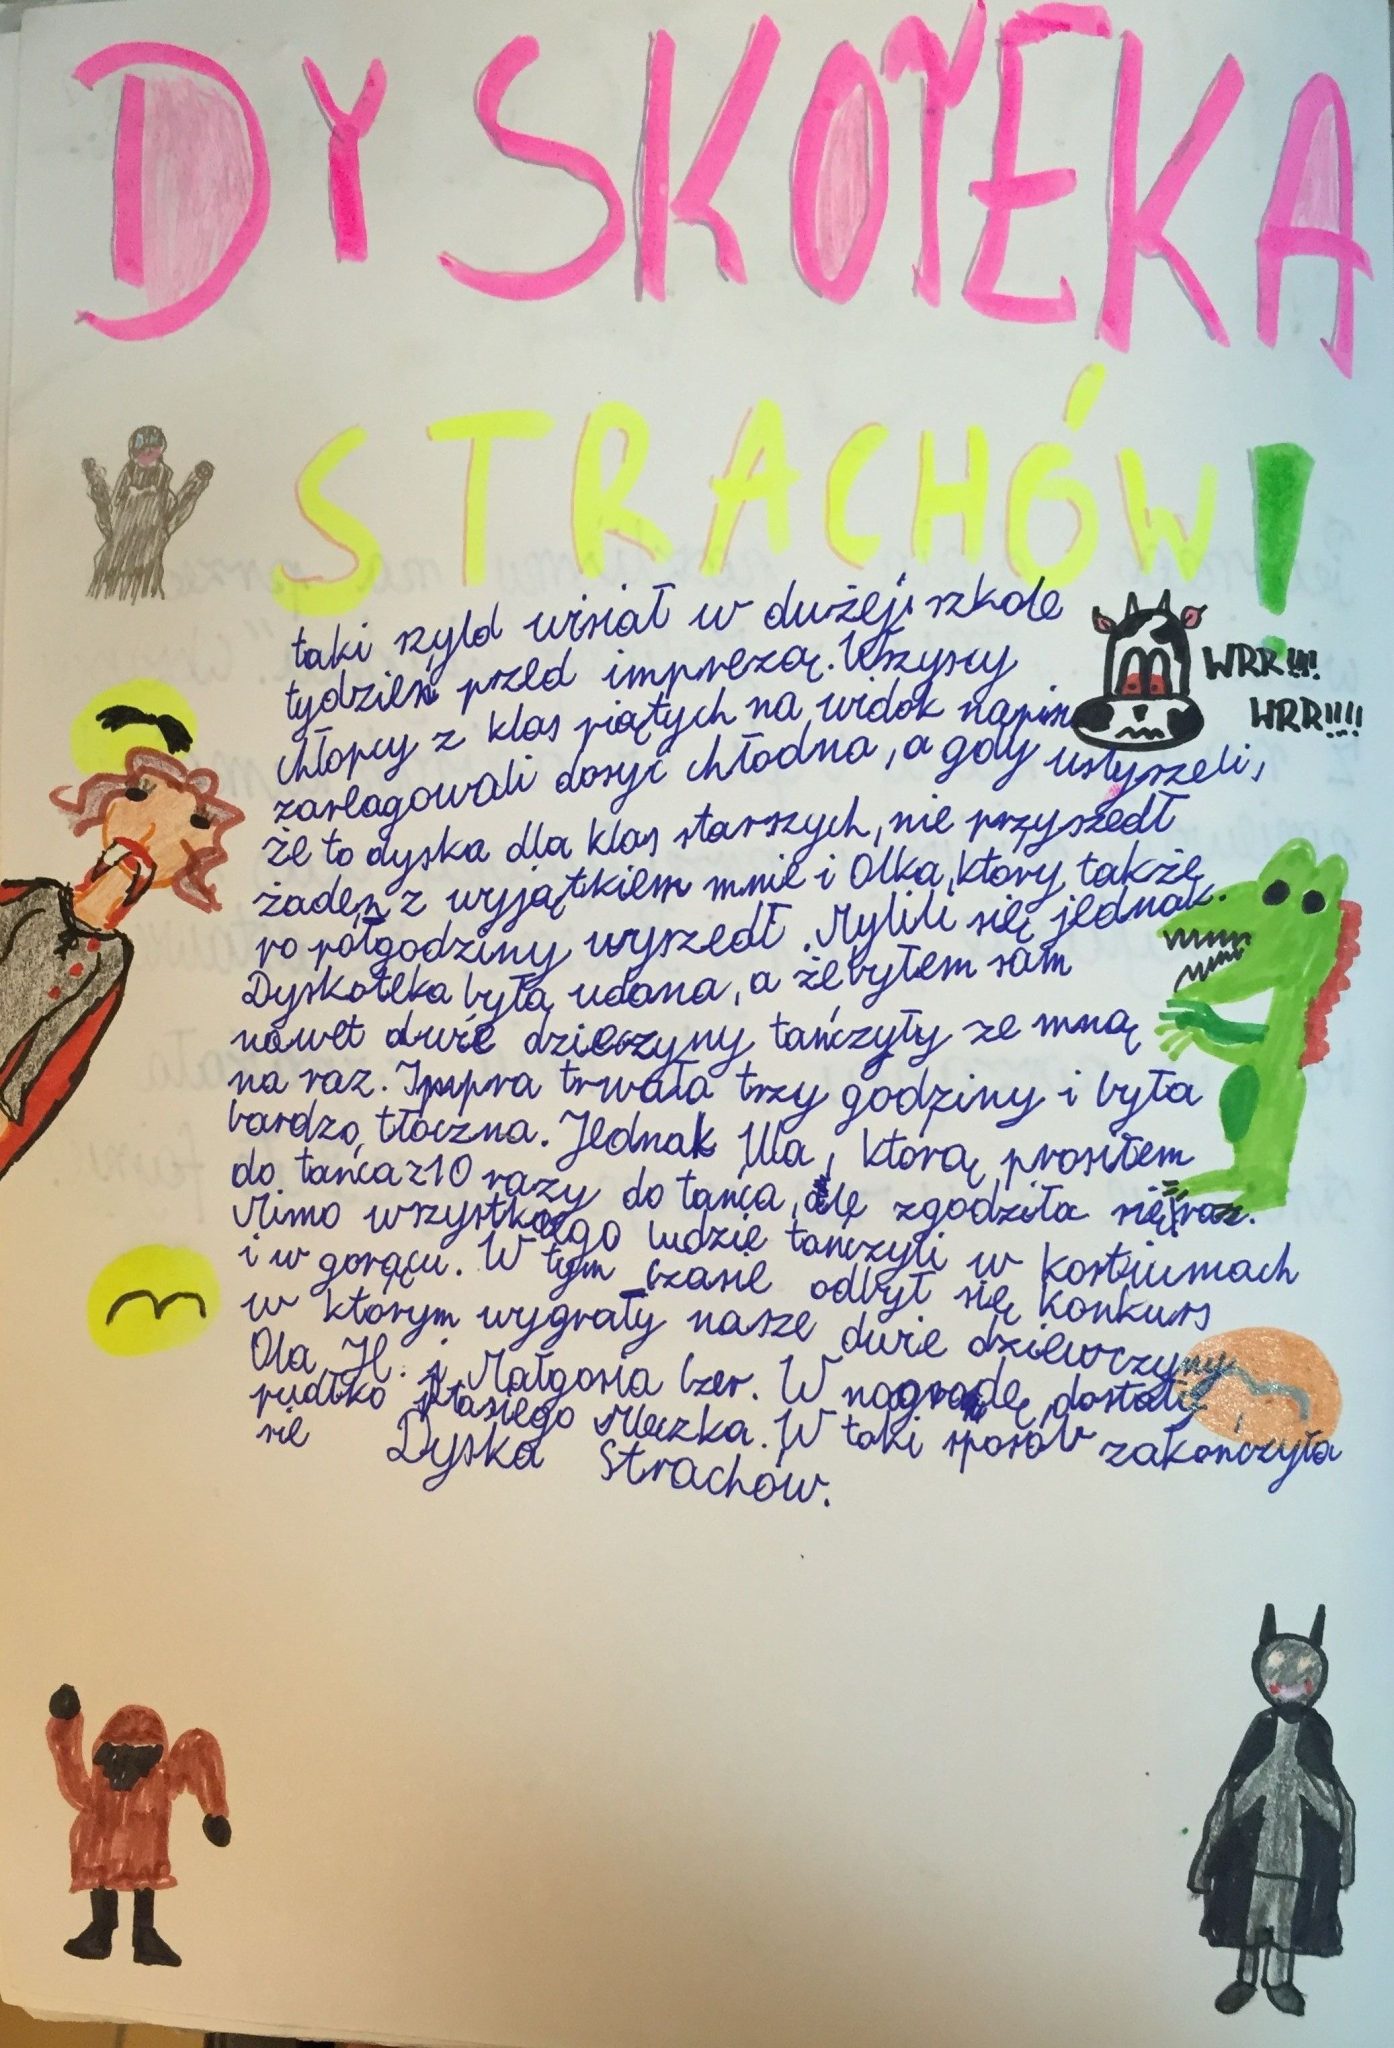 DYSKOTEKA
STRACHÓW!
taki szyld wisiał w dużej szkole
tydzień przed imprezą. Wszyscy
WRR!!!
WRR!!!!
chłopcy z klas piątych na widok napisu
zareagowali dosyć chłodna, a gdy usłyszeli,
że to dyska dla klas starszych, nie przyszedł
żaden z wyjątkiem mnie i Olka, który także
po półgodziny wyszedł. Mylili się jednak.
Dyskoteka była udana, a że byłem sam
nawet dwie dzieczyny tańczyły ze mną
na raz. Impra trwała trzy godziny i była
bardzo tłoczna. Jednak Ula, którą prosiłem
do tańca z 10 razy do tańca, ale zgodziła się raz.
Mimo wszystkiego ludzie tańczyli w kostiumach
i w gorącu. W tym czasie odbył się konkurs
w którym wygrały nasze dwie dziewczyny
Ola H. i Małgosia Czer. W nagrodę dostały
pudłko Ptasiego Mleczka. W taki sposób zakończyła
sie Dyska Strachów.